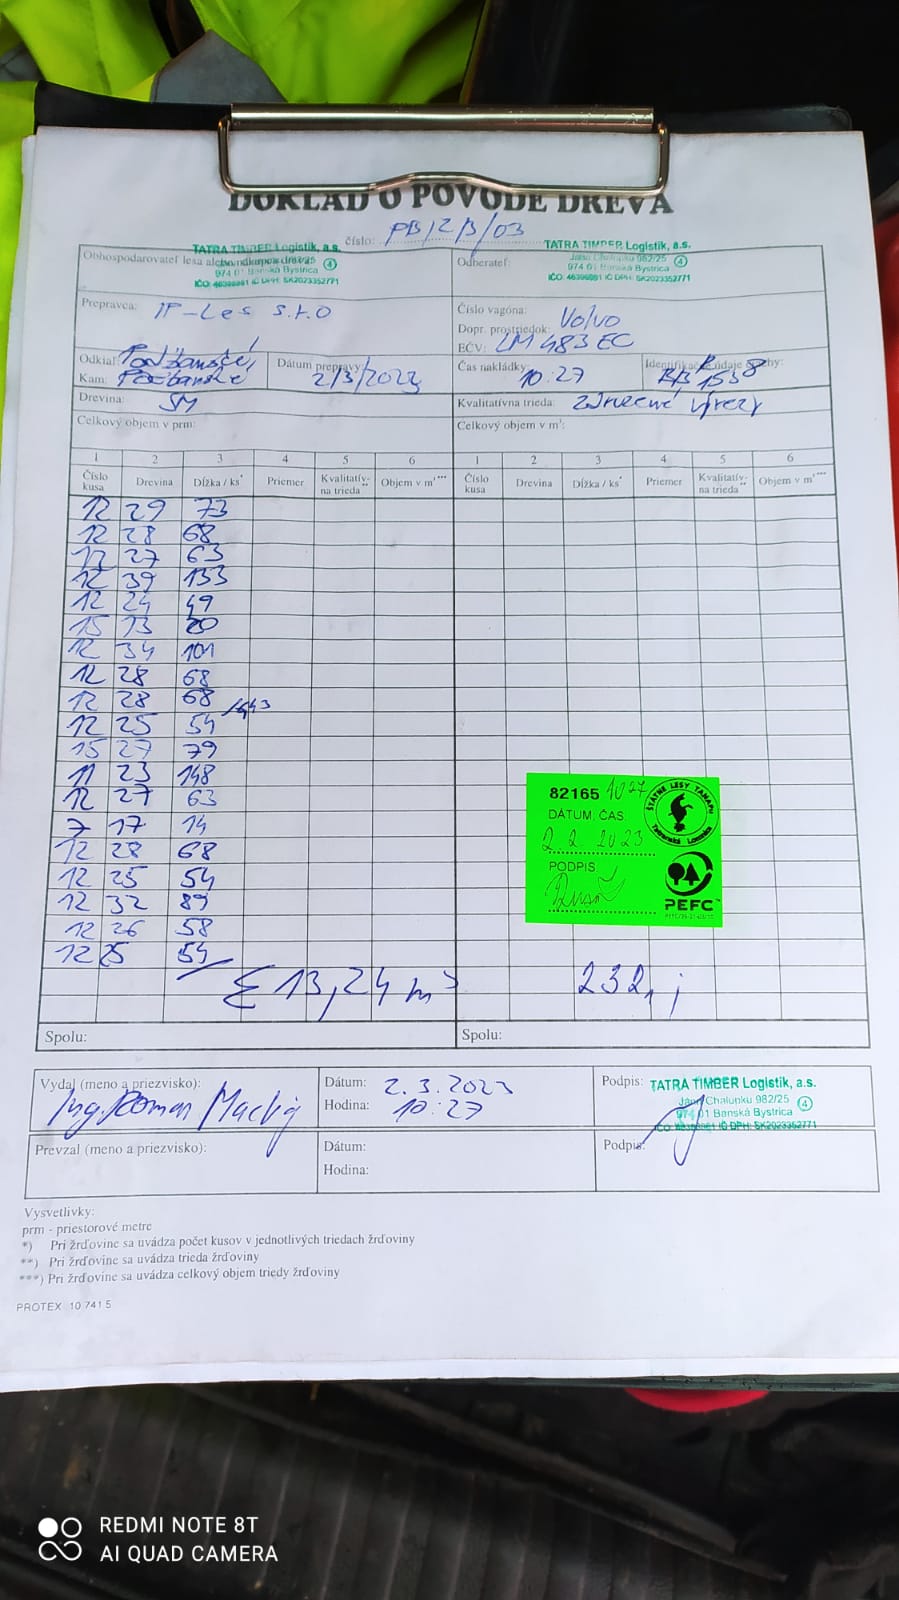 DOKLAD O PÔVODE DREVA
číslo: PB/2/3/03
Obhospodarovateľ lesa alebo nákupca dreva:
TATRA TIMBER Logistik, a.s.
974 01 Banská Bystrica
IČO: 46398881 IČ DPH: SK2023352771
Odberateľ:
TATRA TIMBER Logistik, a.s.
Jána Chalupku 982/25
974 01 Banská Bystrica
IČO: 46398881 IČ DPH: SK2023352771
4
Prepravca: IF-Les s.r.o
Číslo vagóna:
Dopr. prostriedok: Volvo
EČV: LM 483 EC
Odkiaľ: Podbanské,
Kam: Podbanské
Dátum prepravy: 2/3/2023
Čas nakládky: 10:27
Identifikačné údaje plochy:
Drevina: SM
Kvalitatívna trieda: združené výrezy
Celkový objem v prm:
Celkový objem v m³:
1 2 3 4 5 6 1 2 3 4 5 6
Číslo kusa Drevina Dĺžka / ks* Priemer Kvalitatív- na trieda** Objem v m³*** Číslo kusa Drevina Dĺžka / ks* Priemer Kvalitatív- na trieda** Objem v m³***
12 29 73
12 28 68
12 27 63
12 39 133
12 24 49
15 13 20
12 34 101
12 28 68
12 28 68
12 25 54
15 27 79
11 23 148
12 27 63
7 17 14
12 28 68
12 25 54
12 32 89
12 26 58
12 25 54
Σ 13,24 m³
82165 1027
DÁTUM, ČAS:
2 2 2023
PODPIS:
ŠTÁTNE LESY TANAPU
Tatranská Lomnica
PEFC™
Spolu:
Spolu:
Vydal (meno a priezvisko):
Ing. Roman
Dátum: 2.3.2023
Hodina: 10:27
Podpis:
TATRA TIMBER Logistik, a.s.
Jána Chalupku 982/25
974 01 Banská Bystrica
IČO: 46398881 IČ DPH: SK2023352771
4
Prevzal (meno a priezvisko):
Dátum:
Hodina:
Podpis:
Vysvetlivky:
prm - priestorové metre
*) Pri žrďovine sa uvádza počet kusov v jednotlivých triedach žrďoviny
**) Pri žrďovine sa uvádza trieda žrďoviny
***) Pri žrďovine sa uvádza celkový objem triedy žrďoviny
PROTEX 10 741 5
REDMI NOTE 8T
AI QUAD CAMERA